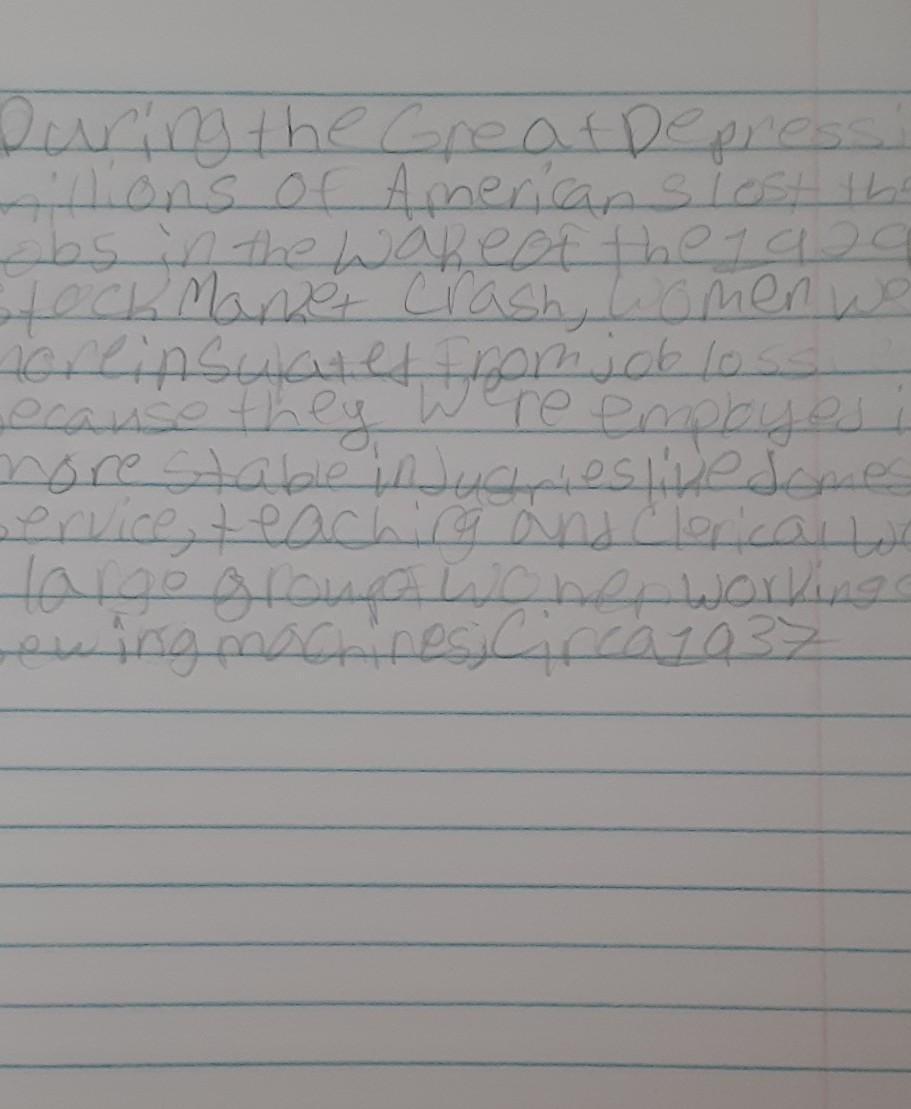 During the Great Depressi
millions of Americans lost the
obs in the wake of the 1929
stock Market Crash, Women we
more insulated from job loss
ecause they were employes i
more stable industries live domes
service, teaching and Clerical wo
large group of women working
ewing machines, Circa 1937